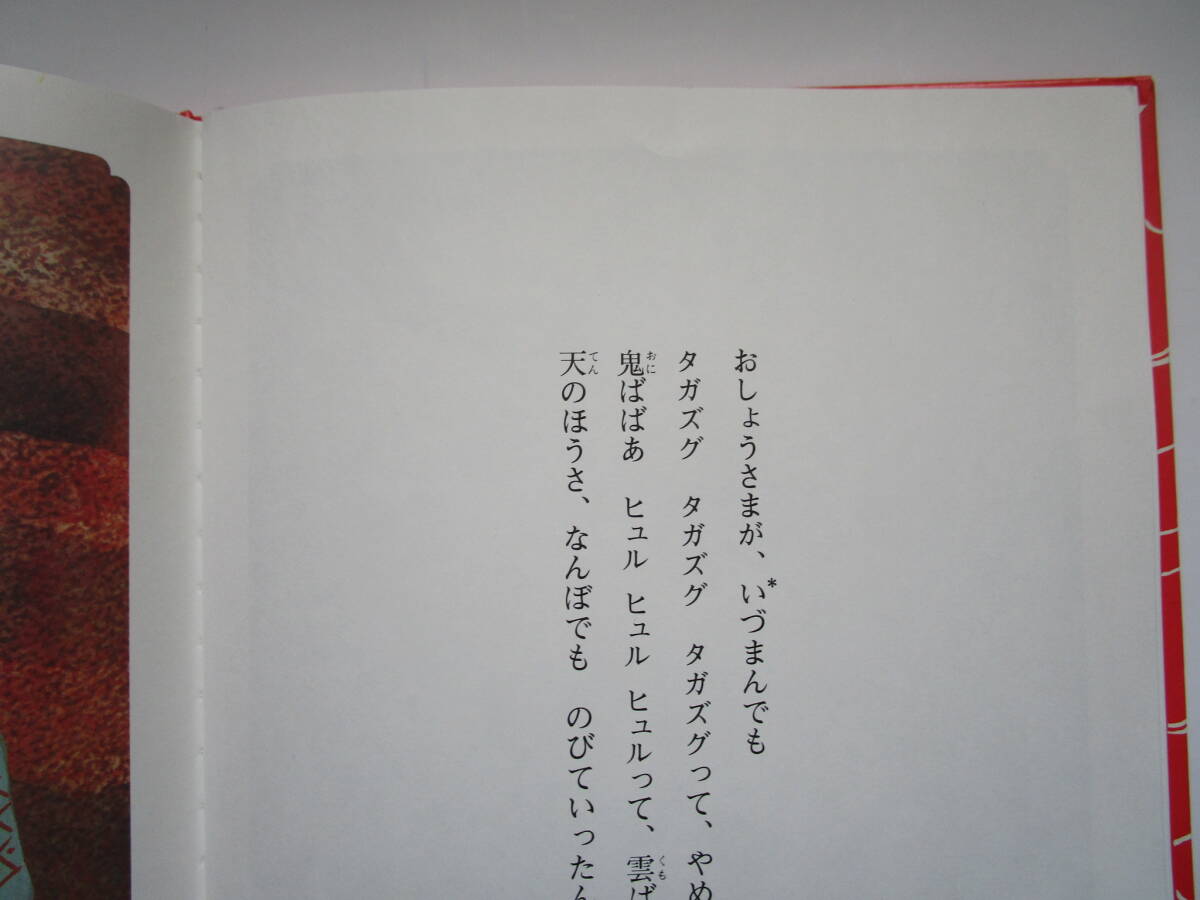 おしょうさまが、い*づまんでも
タガズグ　タガズグ　タガズグって、やめ
鬼ばばあ　ヒュル　ヒュル　ヒュルって、雲ば
天のほうさ、なんぼでも　のびていったん